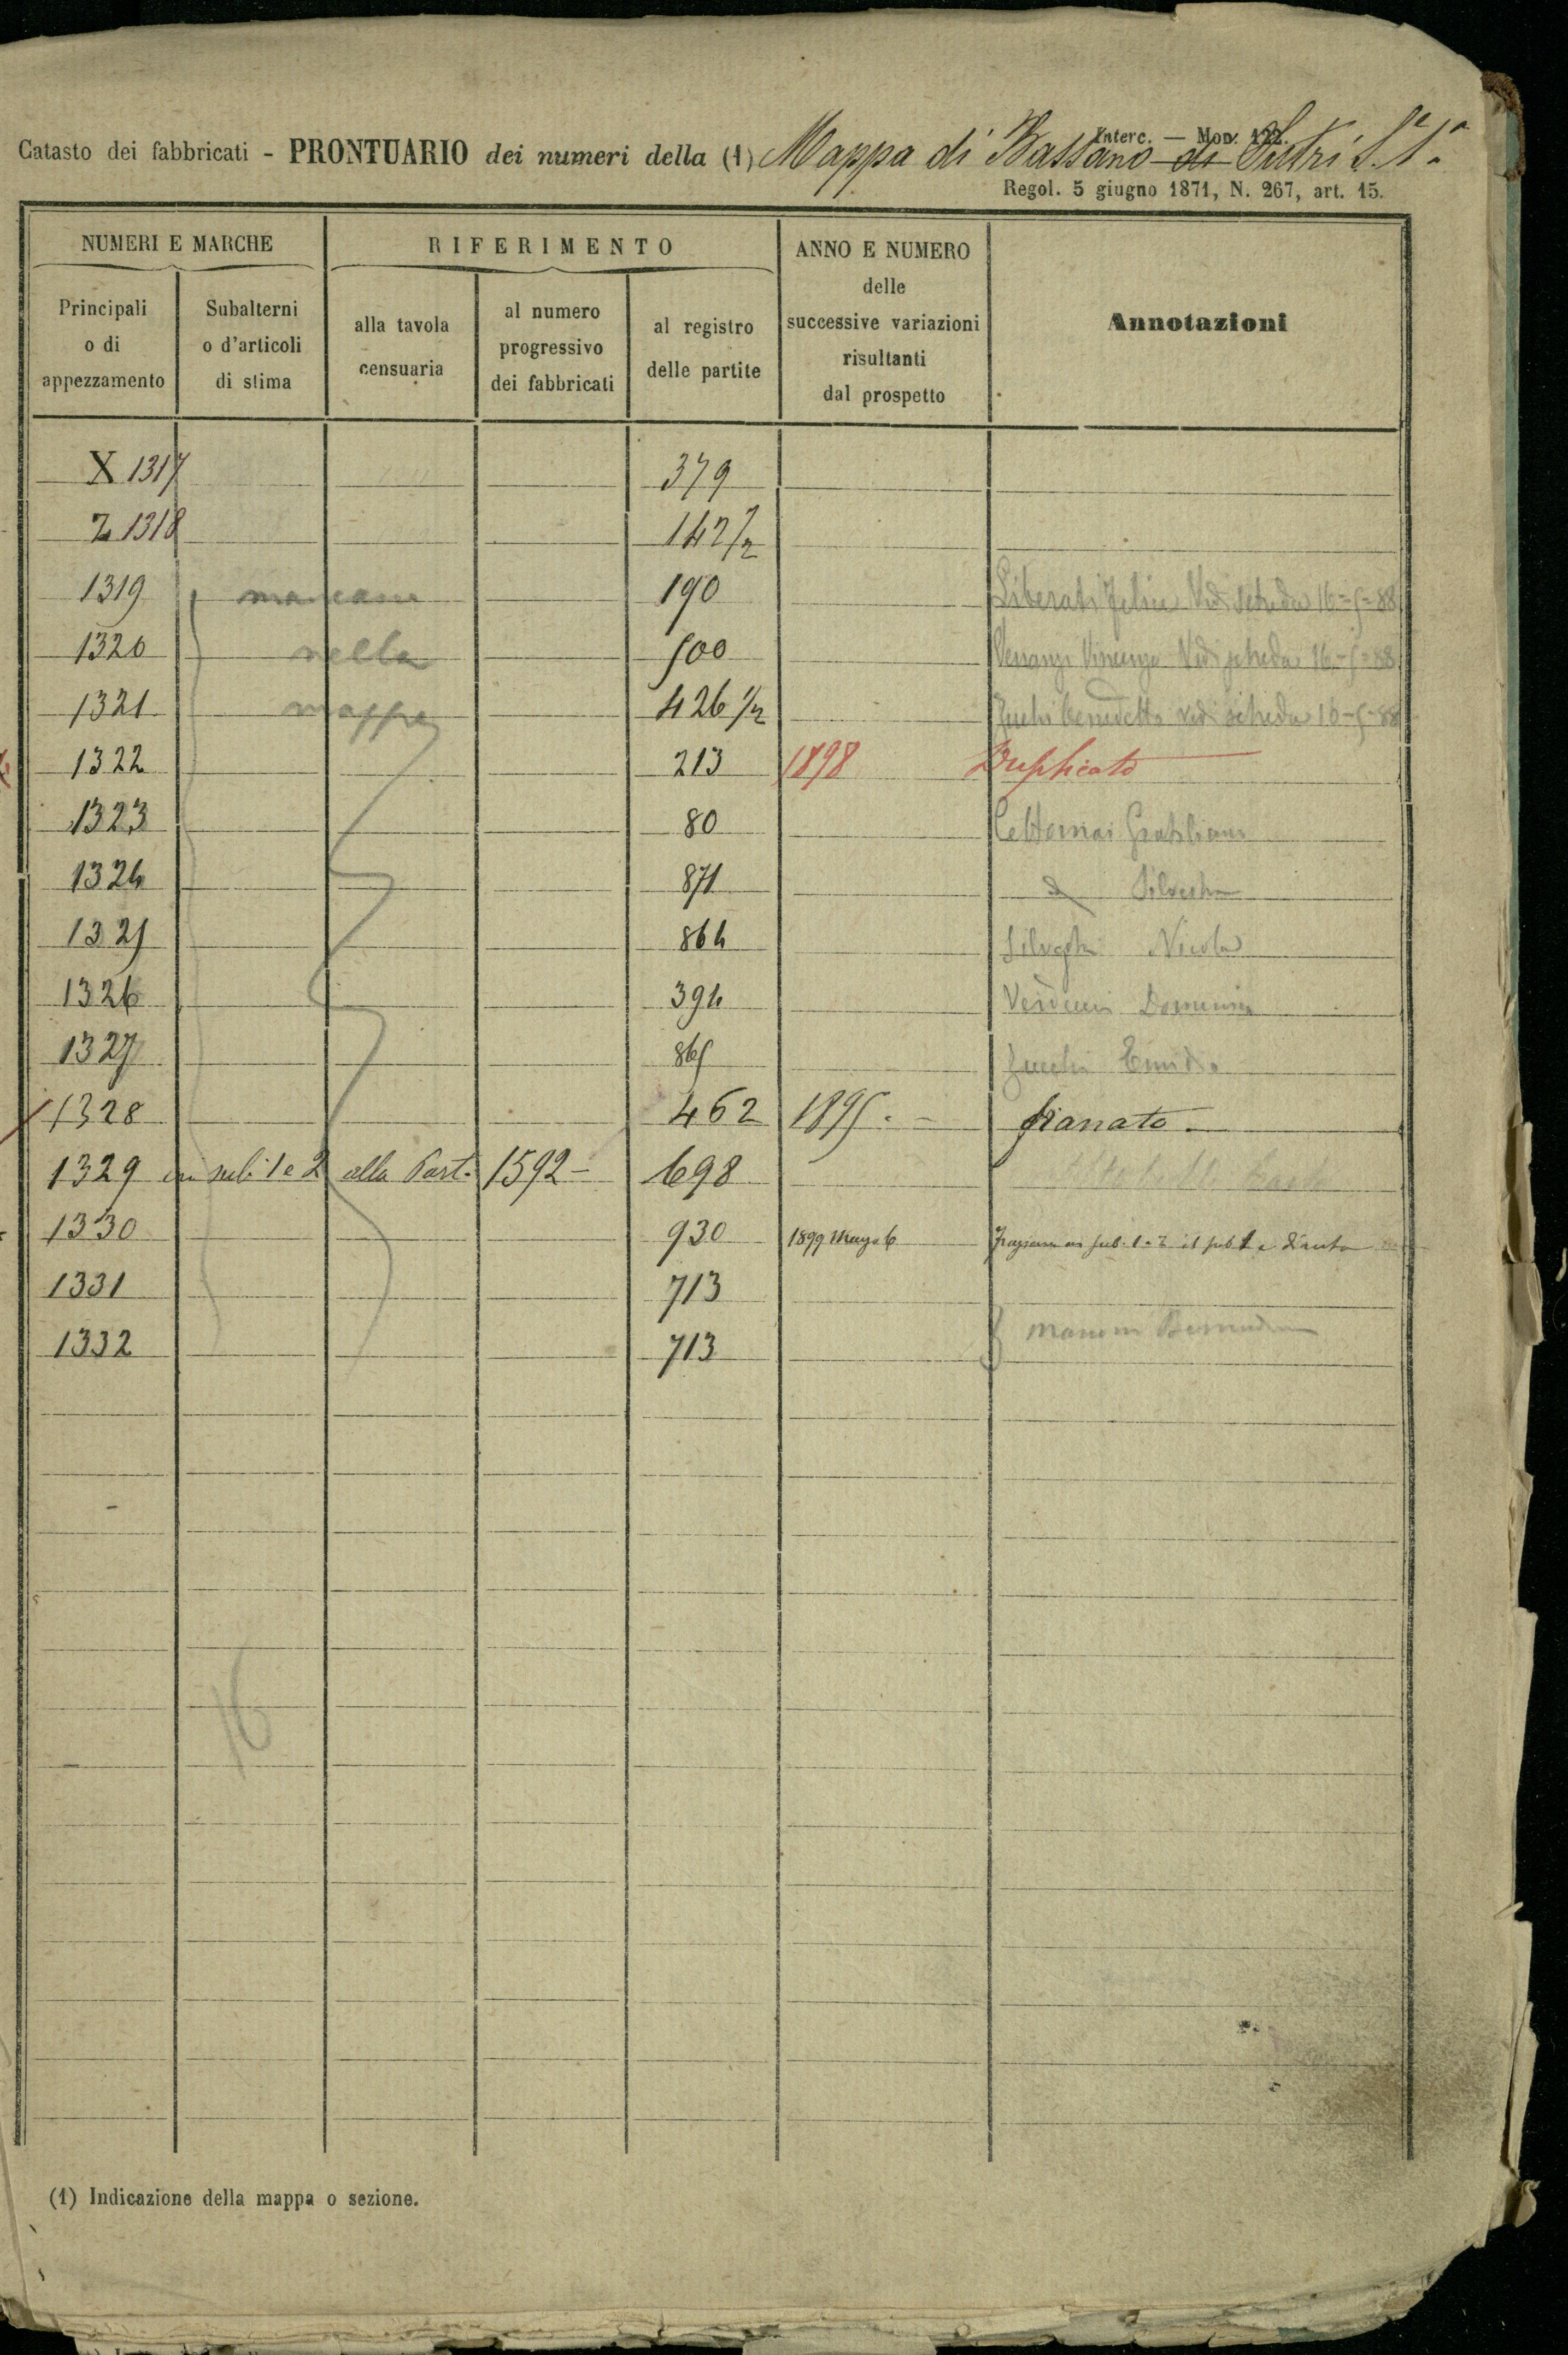 Interc. — Mod. 122.
Catasto dei fabbricati - PRONTUARIO dei numeri della (1) Mappa di Bassano di Sutri S. 1ª
Regol. 5 giugno 1871, N. 267, art. 15.
NUMERI E MARCHE
RIFERIMENTO
ANNO E NUMERO
delle
successive variazioni
risultanti
dal prospetto
Annotazioni
Principali
o di
appezzamento
Subalterni
o d'articoli
di stima
alla tavola
censuaria
al numero
progressivo
dei fabbricati
al registro
delle partite
X 1317 379
Z 1318 142 1/2
1319 mancano 190 Liberati Felice Vedi scheda 16=5=88
1320 nella 500 Vincenzo Vedi scheda 16=5=88
1321 mappa 426 1/2 Benedetto vedi scheda 16=5=88
1322 213 1898 Duplicato
1323 80
1324 871
1325 864 Nicola
1326 394 Domenico
1327 865 Emidio
1328 462 1895.
1329 in sub. 1 e 2 alla Part. 1592 - 698
1330 930 1899 Magg. 6 sub. 1 e 2 il sub 1 e diruto
1331 713
1332 713
16
(1) Indicazione della mappa o sezione.